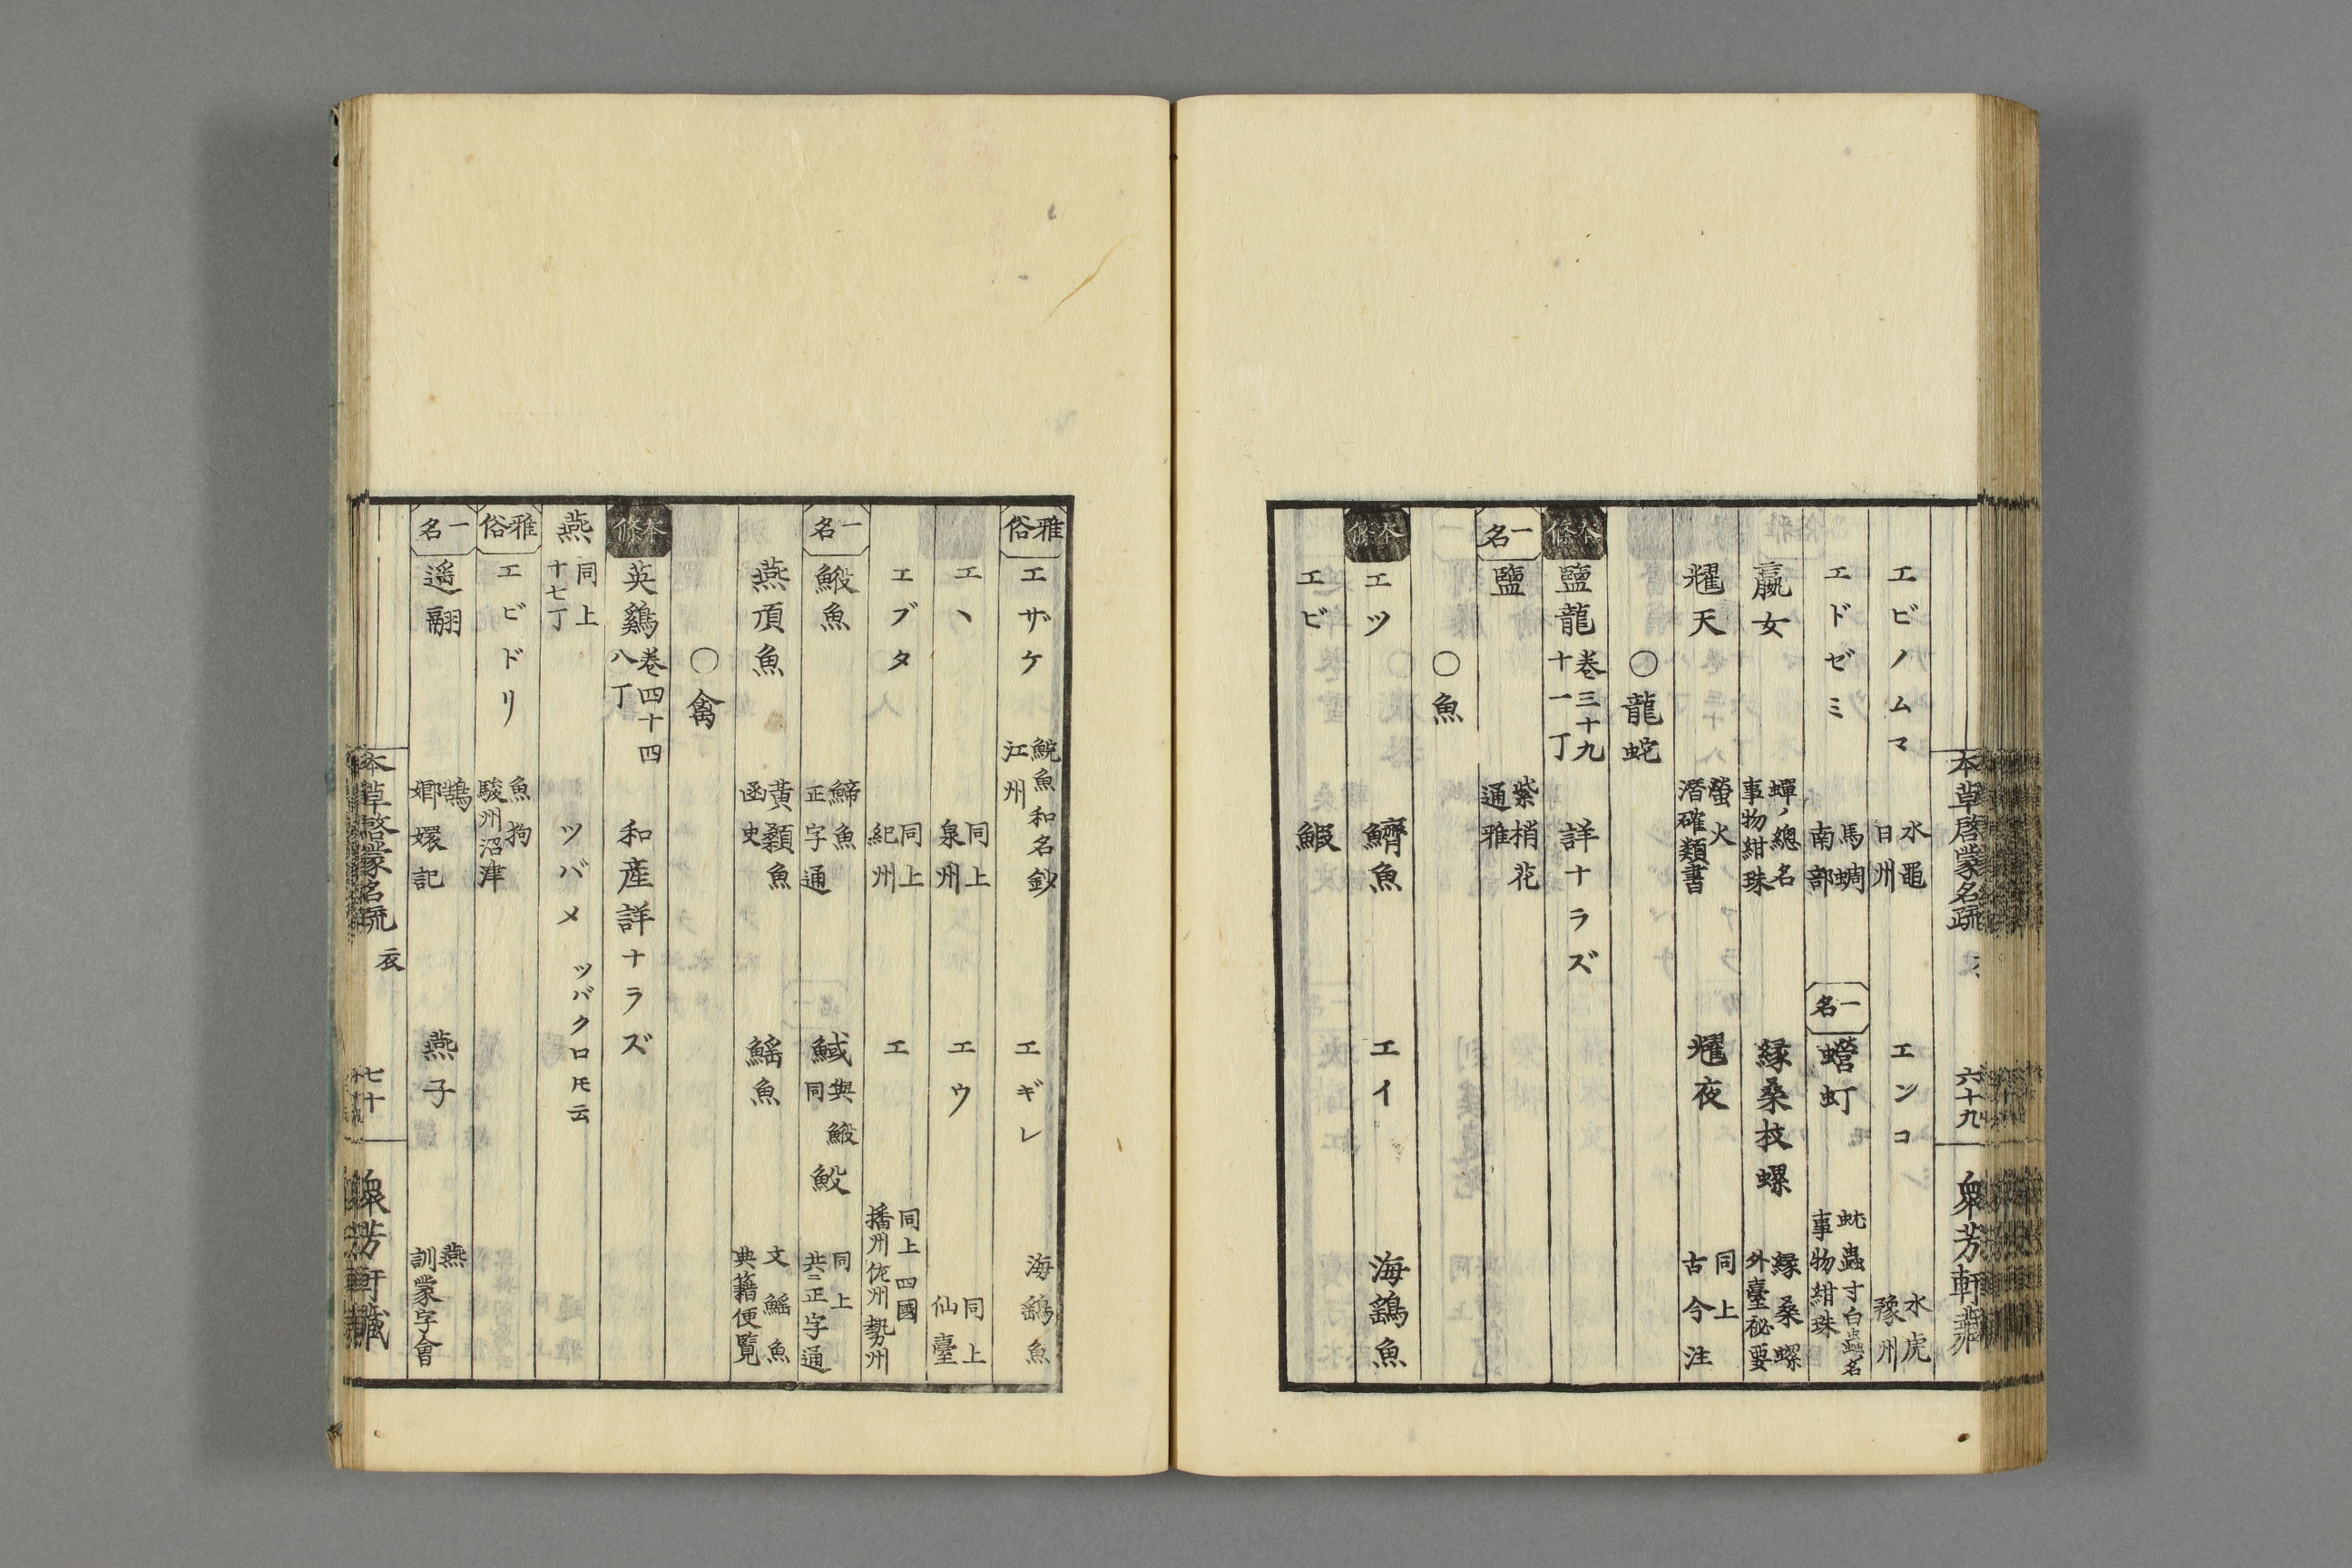 本草啓蒙名疏
六十九
衆芳軒藏
エビノムマ 水黽 日州 エンコ 水虎 豫州
エドゼミ 馬蜩 南部 一名 蟧虰 蚘蟲寸白蟲名 事物紺珠
嬴女 蟬ノ總名 事物紺珠 縁桑枝螺 縁桑螺 外臺秘要
燿天 螢火 潛確類書 燿夜 同上 古今注
〇龍蛇
本條 鹽龍 卷三十九 十一丁 詳ナラズ
一名 鹽 紫梢花 通雅
〇魚
本條 エツ 鱭魚 エイ 海鷂魚
エビ 鰕
雅俗 エザケ 鮵魚 和名鈔 江州 エギレ 海鷂魚
エヽ 同上 泉州 エウ 同上 仙臺
エブタ 同上 紀州 エ 同上 四國 播州 佐州 勢州
一名 魚 鯑魚 正字通 魊 與 同 同上 共ニ正字通
燕頂魚 黄顙魚 函史 鰩魚 文鰩魚 典籍便覧
〇禽
本條 英鷄 卷四十四 八丁 和產詳ナラズ
燕 同上 十七丁 ツバメ ツバクロトモ云
雅俗 エビドリ 魚狗 駿州沼津
一名 遥翮 鵠 嫏嬛記 燕子 燕 訓蒙字會
本草啓蒙名疏 衣
七十
衆芳軒藏